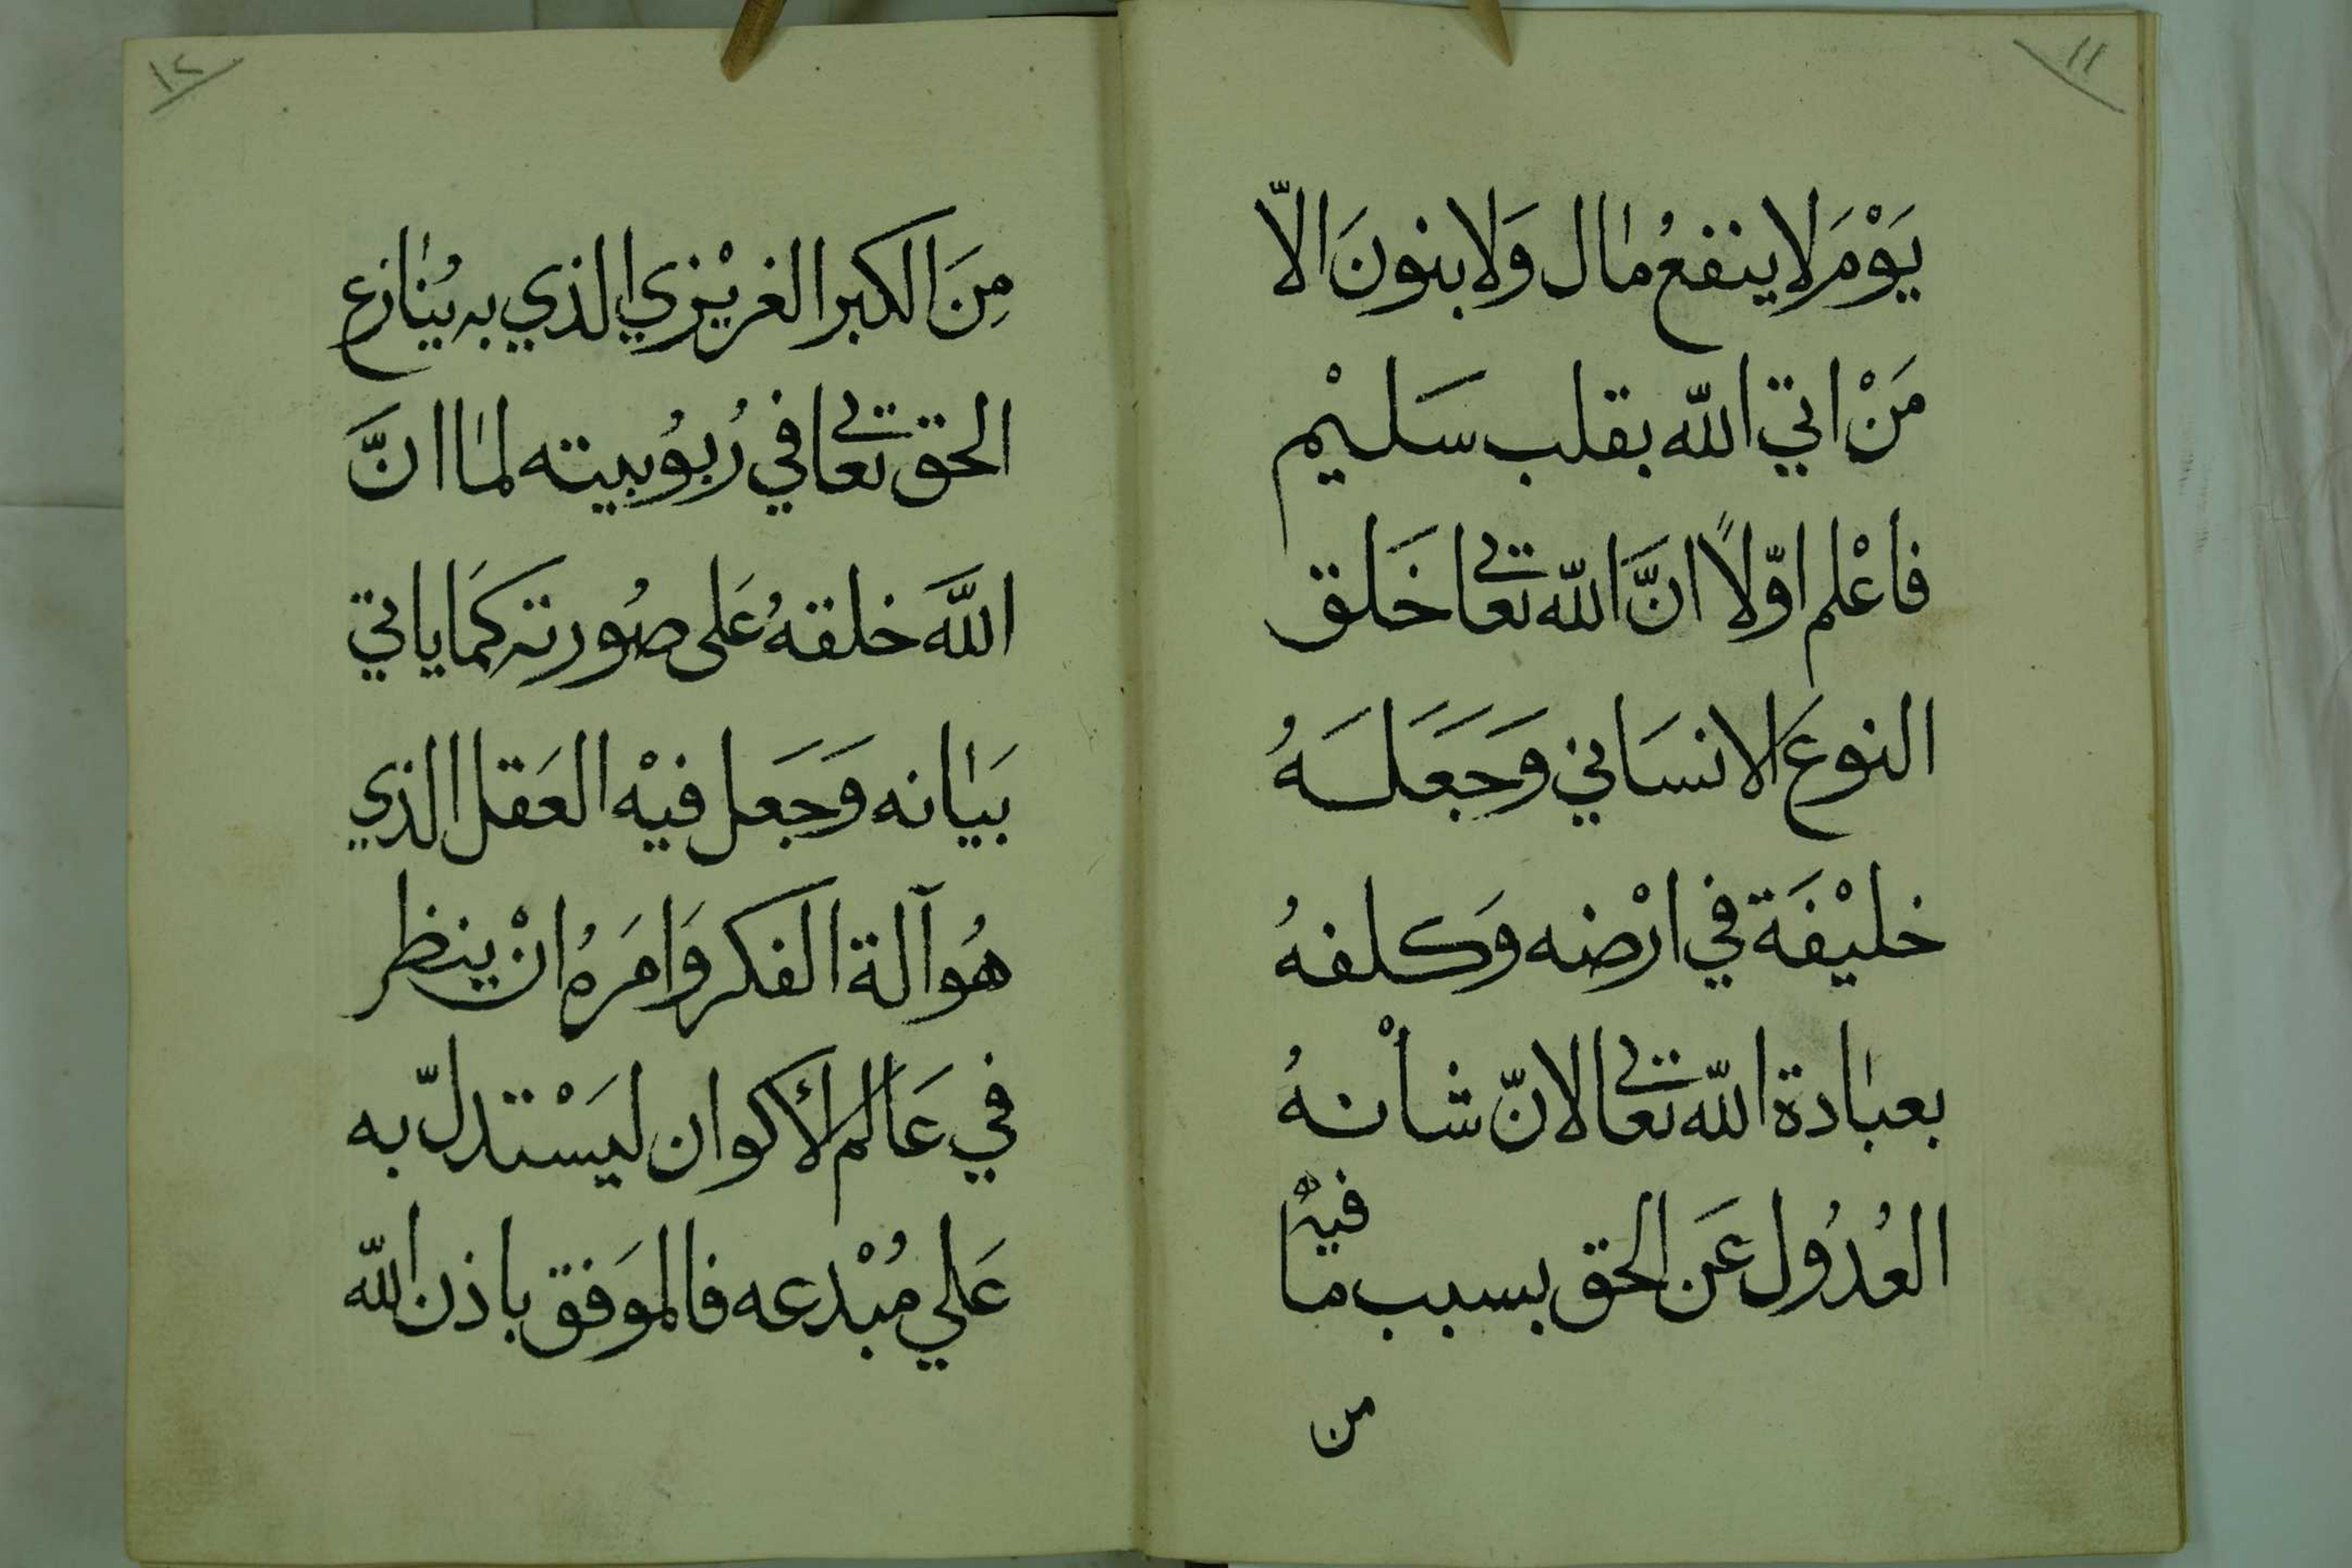 ١١
يَوْمَ لا ينفعُ مٰال وَلا بنونَ الاّ
مَنْ اتي اللّه بقلب سَليْم
فاعْلم اوّلاً انَّ اللّه تعالى خَلق
النوعَ الانسَاني وَجَعَلَهُ
خليْفَة في ارْضه وَكلفهُ
بعبٰادة اللّه تعالى لانّ شأنهُ
العُدُول عَن الحق بسبب ما فيهْ
من
١٢
مِنَ الكبر الغريْزي الذي به يُنٰازع
الحق تعالى في رُبوُبيته لمٰا انَّ
اللَّه خلقهُ عَلى صُورته كمَا ياتي
بَيٰانه وَجَعل فيْه العَقل الذي
هُو آلة الفكر وَامَرهُ انْ ينظر
في عَالم الأكوان ليَسْتدلّ به
عَلي مُبْدعه فالموَفق باذن اللّه